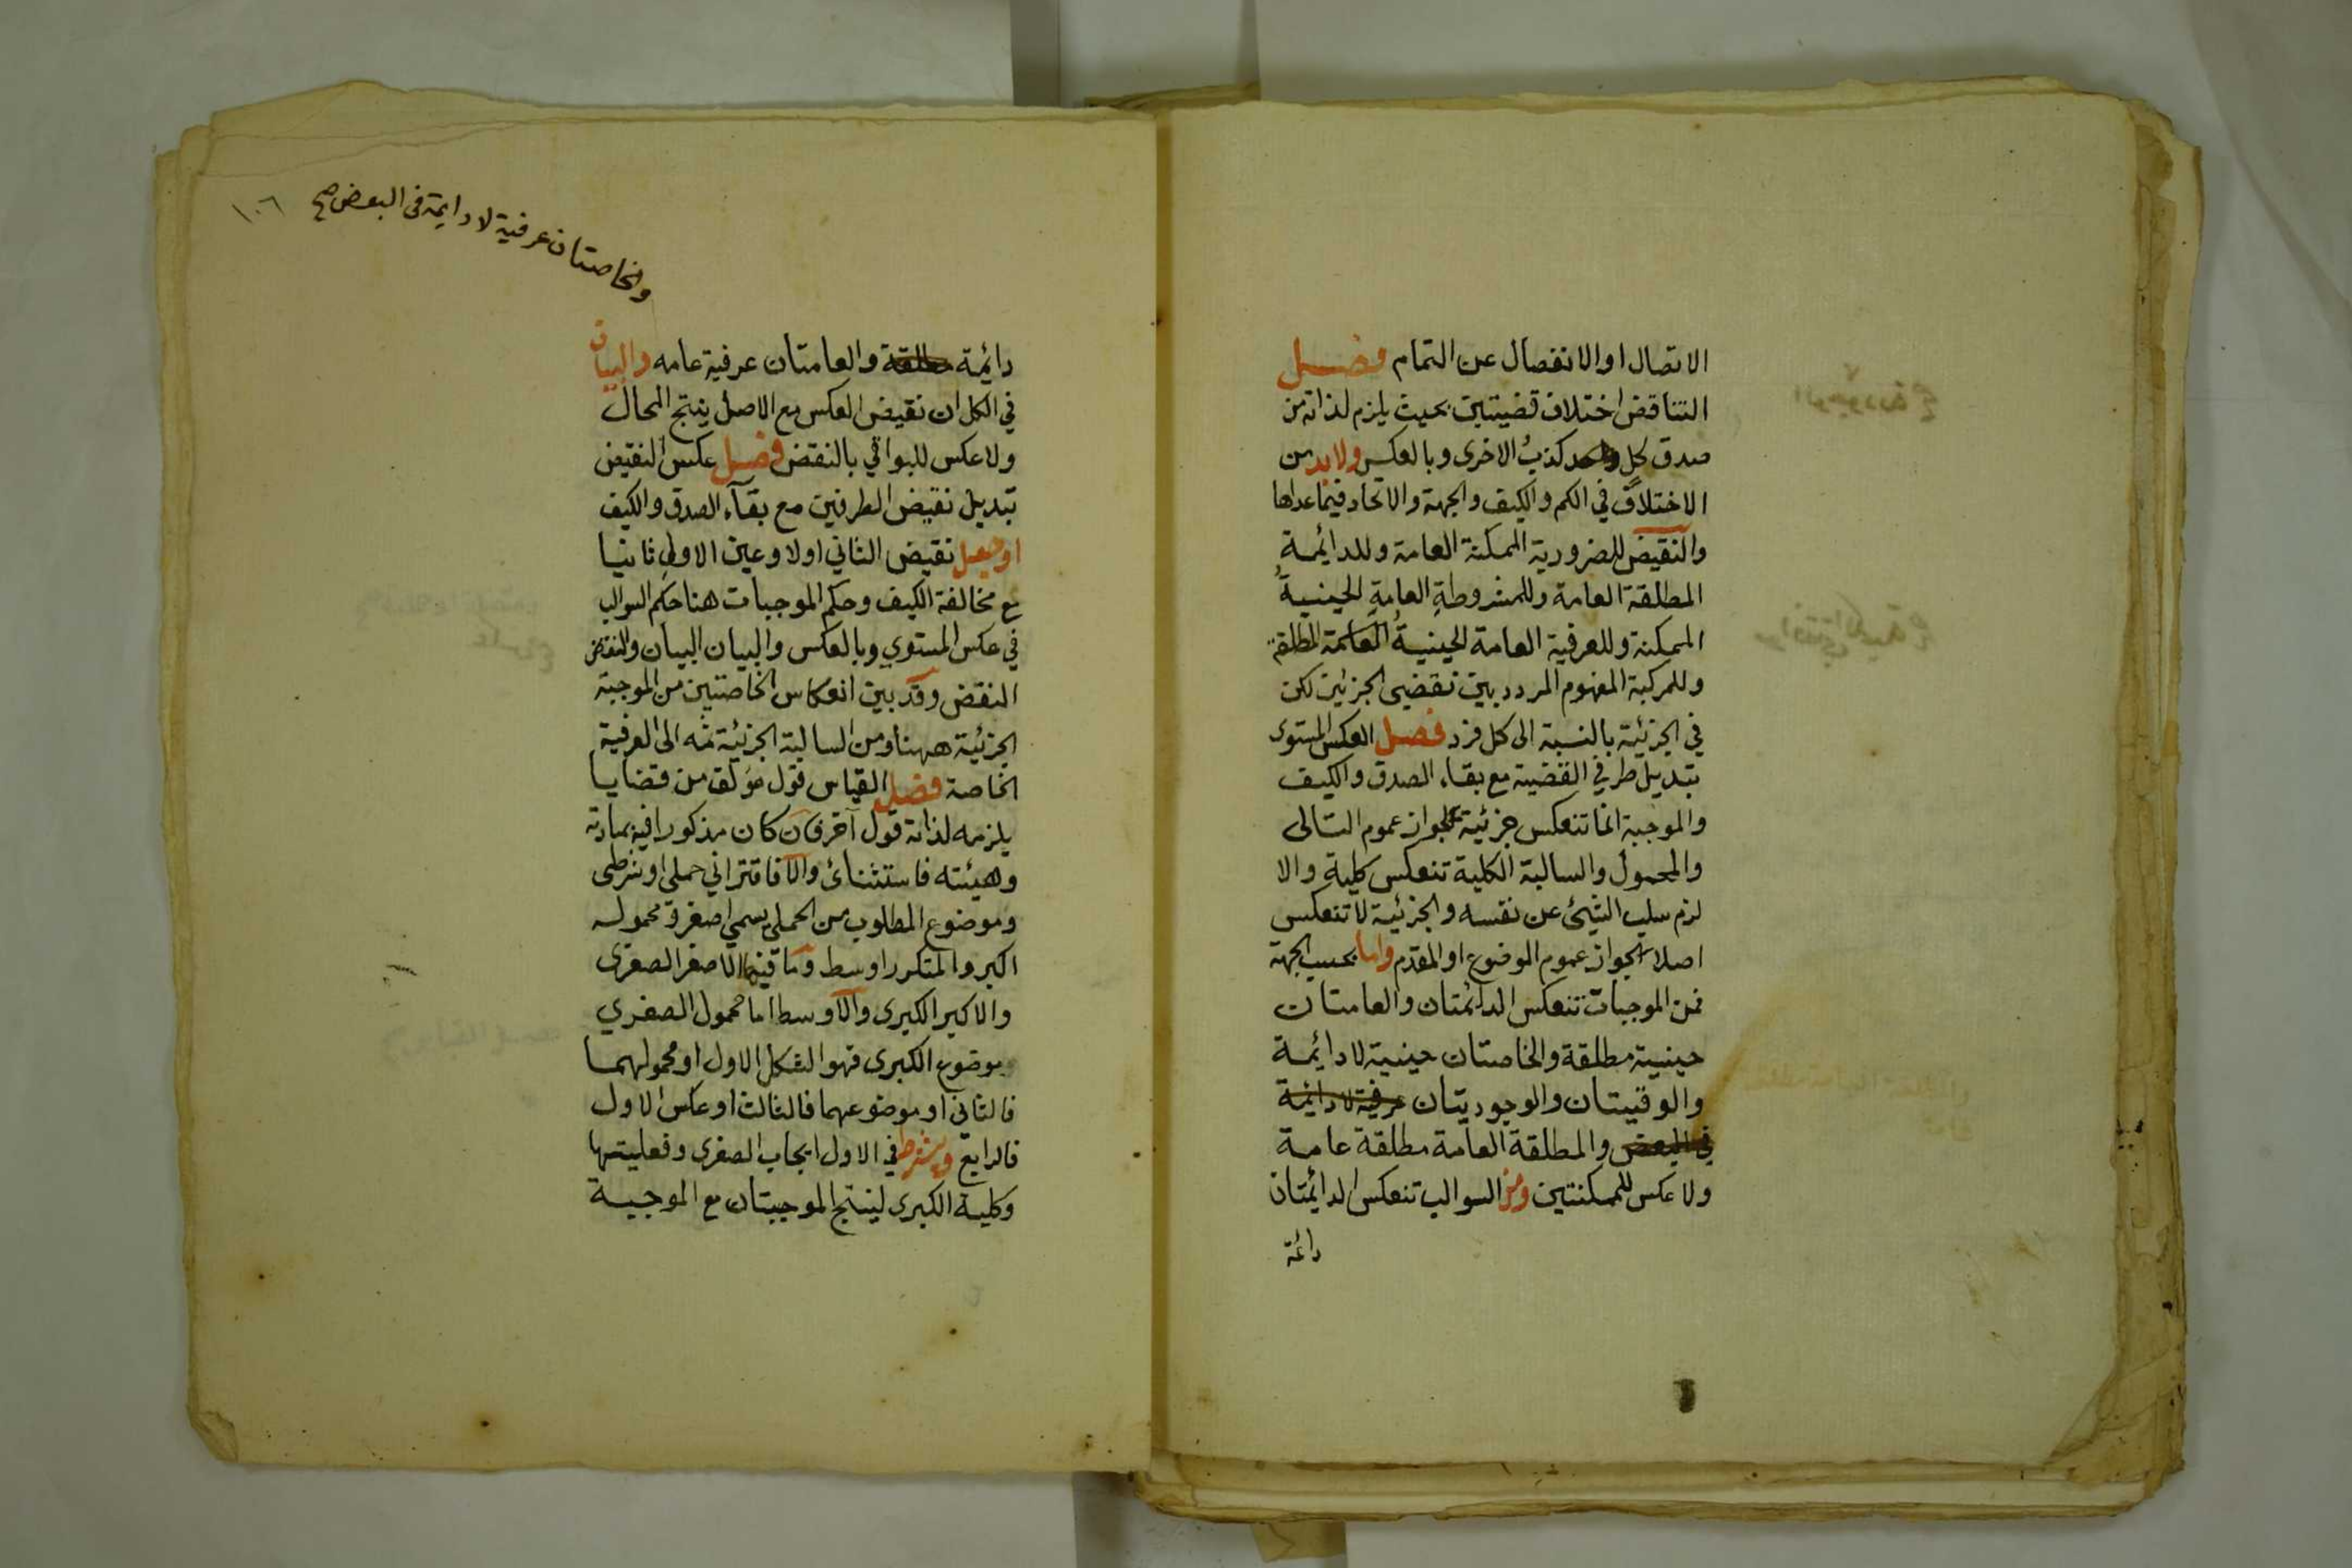 الاتصال او الانفصال عن التمام فصل
التناقض اختلاف قضيتين بحيث يلزم لذاته من
صدق كل واحد كذب الاخرى وبالعكس ولا بد من
الاختلاف في الكم والكيف والجهة والاتحاد فيما عداها
والنقيض للضرورية الممكنة العامة وللدائمة
المطلقة العامة وللمشروطة العامة الحينية
الممكنة وللعرفية العامة الحينية العامة المطلقة
وللمركبة المفهوم المردد بين نقضي الجزئين لكن
في الجزئية بالنسبة الى كل فرد فصل العكس المستوى
تبديل طرفي القضية مع بقاء الصدق والكيف
والموجبة انما تنعكس جزئية لجواز عموم التالى
والمحمول والسالبة الكلية تنعكس كلية والا
لزم سلب الشئ عن نفسه والجزئية لا تنعكس
اصلا لجواز عموم الموضوع او المقدم واما بحسب الجهة
فمن الموجبات تنعكس الدائمتان والعامتان
حينية مطلقة والخاصتان حينية لا دائمة
والوقتيتان والوجوديتان عرفية لا دائمة
في البعض والمطلقة العامة مطلقة عامة
ولا عكس للممكنتين ومن السوالب تنعكس الدائمتان
دائمة
١٠٦
والخاصتان عرفية لا دايمة فى البعض صح
دائمة مطلقة والعامتان عرفية عامه والبيان
في الكل ان نقيض العكس مع الاصل ينتج المحال
ولا عكس للبواقي بالنقض فصل عكس النقيض
تبديل نقيض الطرفين مع بقآء الصدق والكيف
او جعل نقيض الثاني اولا وعين الاول ثانيا
مع مخالفة الكيف وحكم الموجبات هنا حكم السوالب
في عكس المستوي وبالعكس والبيان البيان والنقض
النقض وقد بين انعكاس الخاصتين من الموجبة
الجزئية ههنا ومن السالبة الجزئية ثمه الى العرفية
الخاصة فصل القياس قول مؤلف من قضايا
يلزمه لذاته قول آخر فان كان مذكورا فيه بمادته
وهيئته فاستثنائ والا فاقتراني حملي او شرطى
وموضوع المطلوب من الحملي يسمي اصغر ومحموله
اكبر والمتكرر اوسط وما فيه الاصغر الصغرى
والاكبر الكبرى والاوسط اما محمول الصغري
وموضوع الكبرى فهو الشكل الاول او محمولهما
فالثاني او موضوعهما فالثالث او عكس الاول
فالرابع ويشترط في الاول ايجاب الصغرى وفعليتها
وكلية الكبرى لينتج الموجبتان مع الموجبة